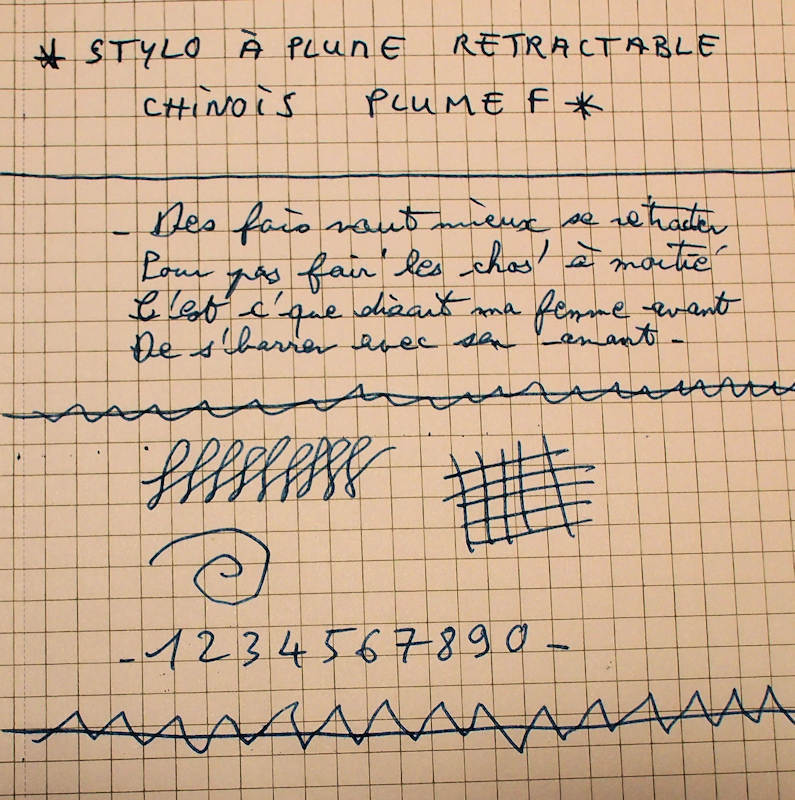 * STYLO À PLUME RETRACTABLE
CHINOIS PLUME F *
- Des fois vaut mieux se rétracter
Pour pas fair' les chos' à moitié
C'est c'que disait ma femme avant
De s'barrer avec son amant -
- 1 2 3 4 5 6 7 8 9 0 -